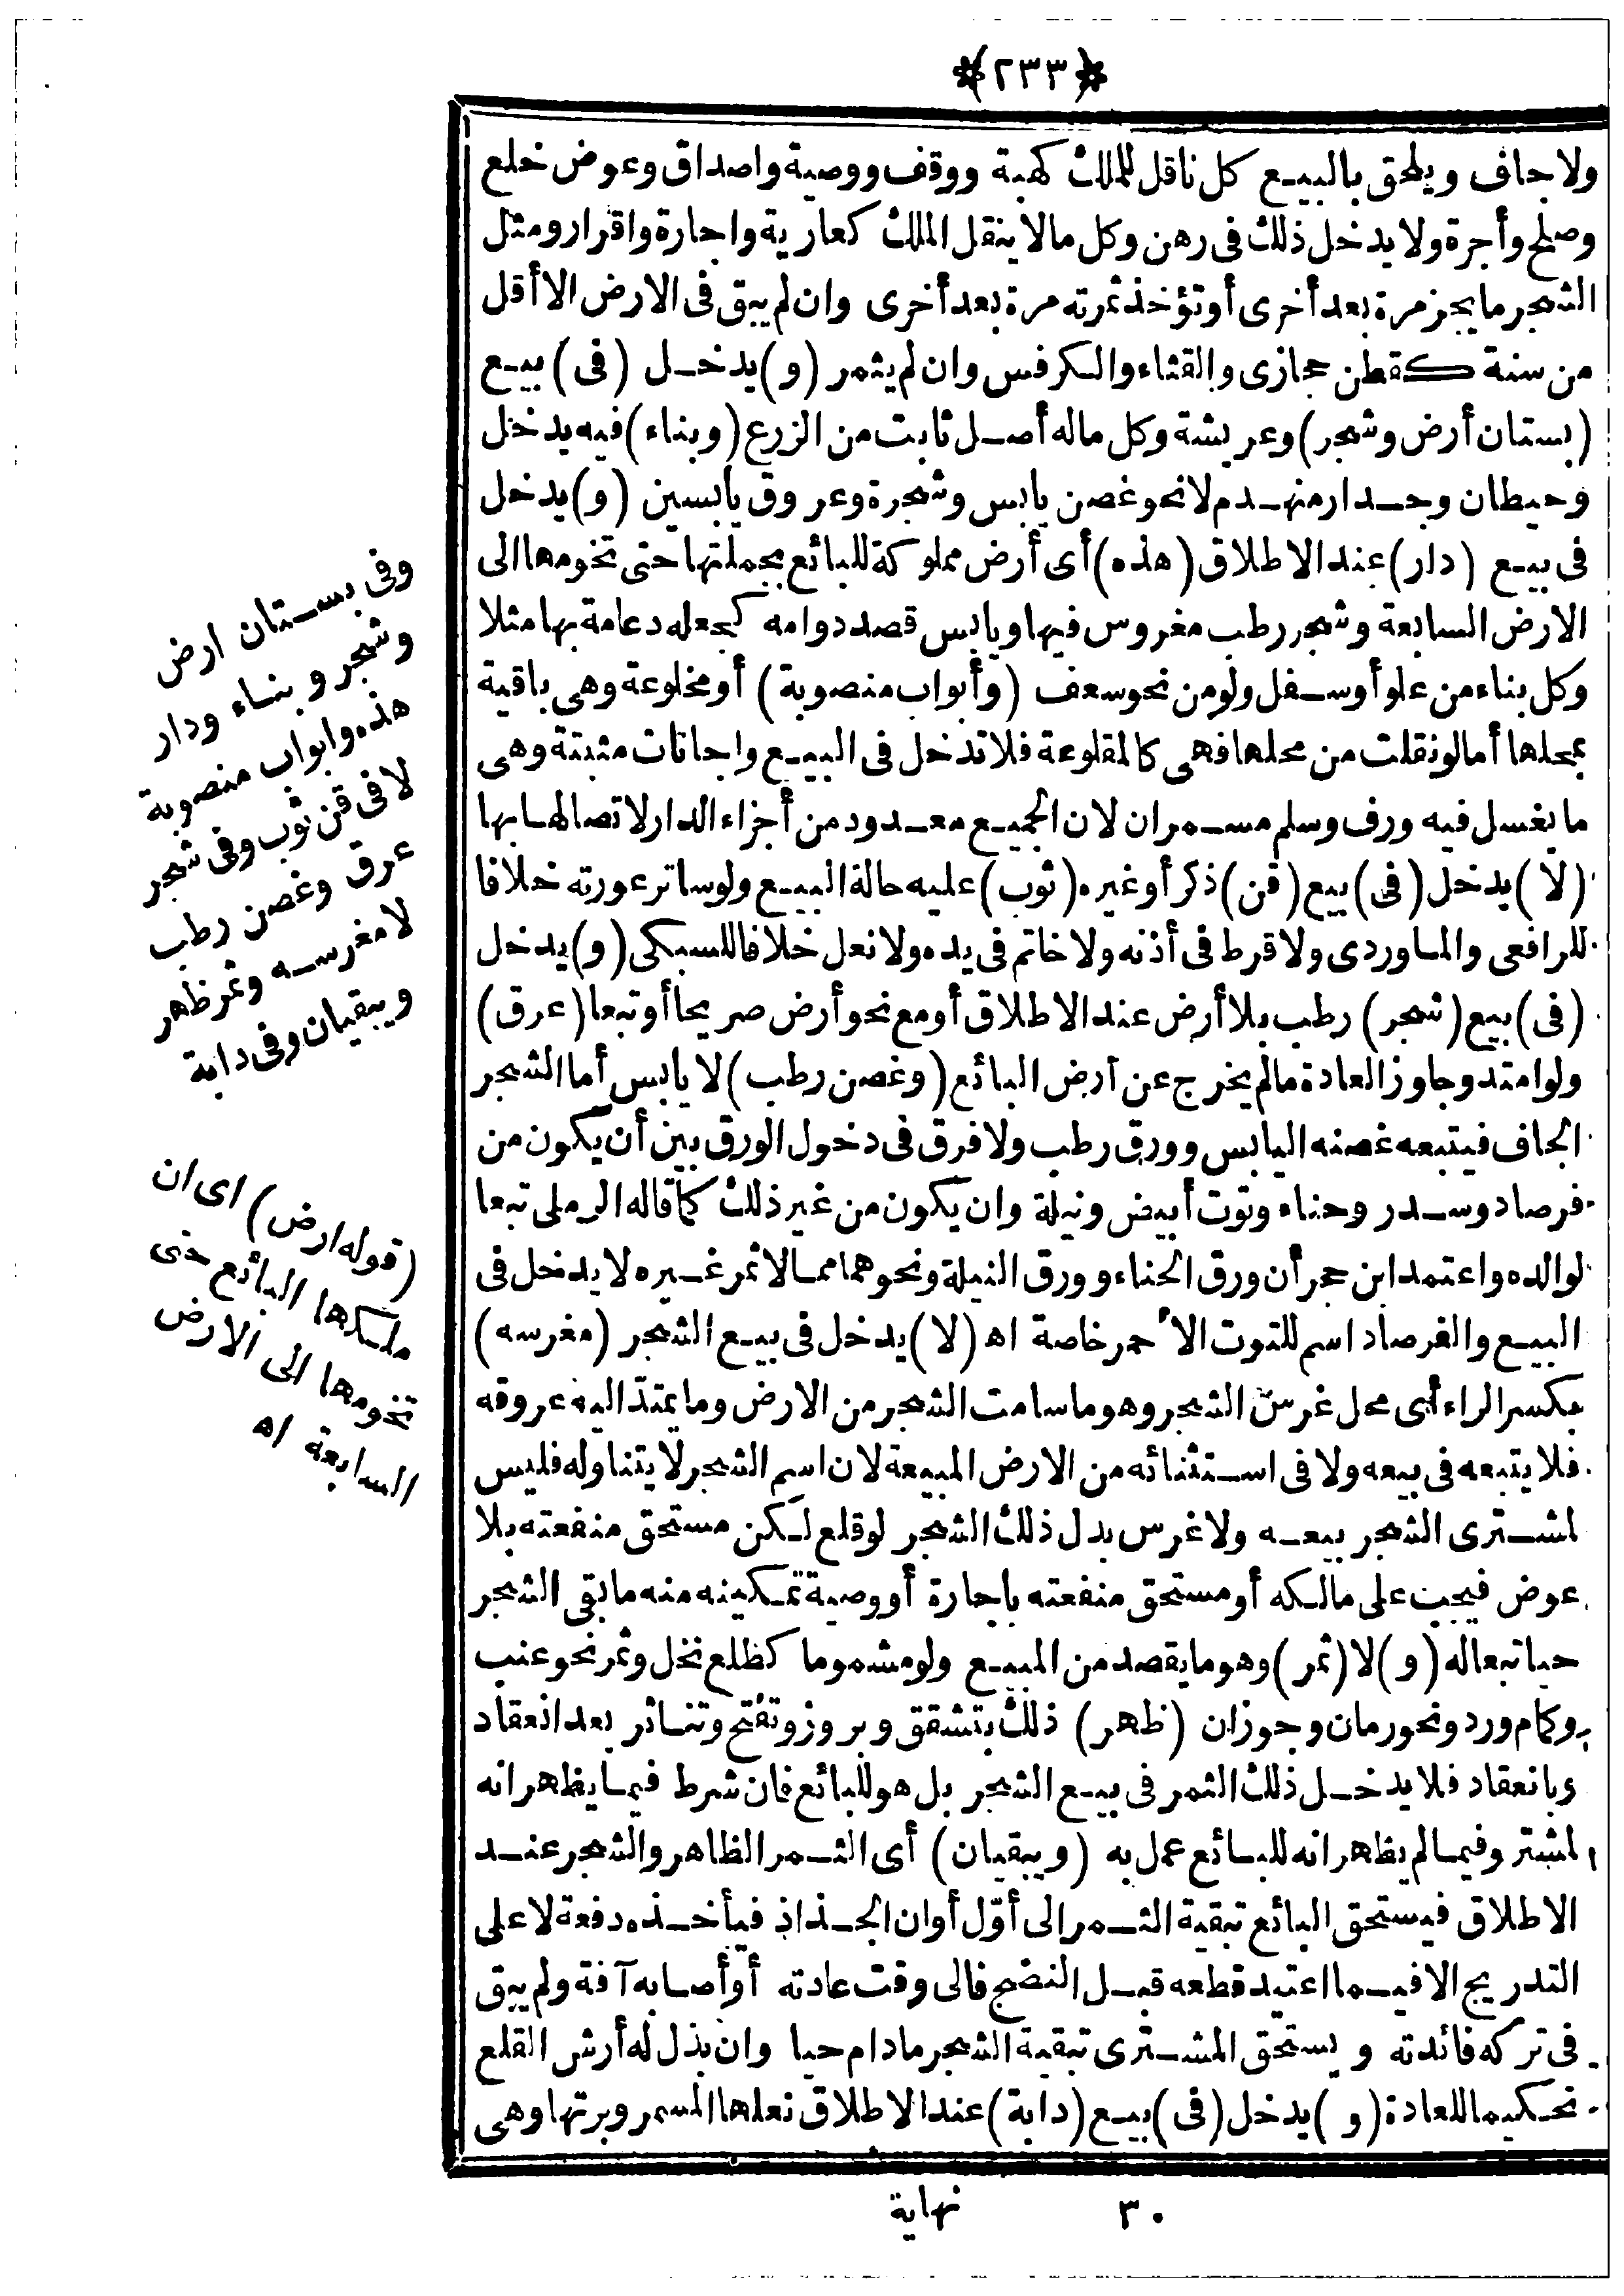 ﴿٢٣٣﴾
ولا جاف ويلحق بالبيع كل ناقل للملك كهبة ووقف ووصية واصداق وعوض خلع
وصلح وأجرة ولا يدخل ذلك فى رهن وكل ما لا ينقل الملك كعارية واجارة واقرار ومثل
الشجر ما يجز مرة بعد أخرى أو تؤخذ ثمرته مرة بعد أخرى وان لم يبق فى الارض الا أقل
من سنة كقطن حجازى والقثاء والكرفس وان لم يثمر (و) يدخل (فى) بيع
(بستان أرض وشجر) وعريشة وكل ماله أصل ثابت من الزرع (وبناء) فيه يدخل
وحيطان وجدار منهدم لا نحو غصن يابس وشجرة وعروق يابسين (و) يدخل
فى بيع (دار) عند الاطلاق (هذه) أى أرض مملوكة للبائع بجملتها حتى تخومها الى
الارض السابعة وشجر رطب مغروس فيها ويابس قصد دوامه كجعله دعامة بها مثلا
وكل بناء من علو أو سفل ولو من نحو سعف (وأبواب منصوبة) أو مخلوعة وهى باقية
بمحلها أما لو نقلت من محلها فهى كالمقلوعة فلا تدخل فى البيع واجانات مثبتة وهى
ما يغسل فيه ورف وسلم مسمران لان الجميع معدود من أجزاء الدار لاتصالها بها
(لا) يدخل (فى) بيع (قن) ذكر أو غيره (ثوب) عليه حالة البيع ولو ساتر عورته خلافا
للرافعى والماوردى ولا قرط فى أذنه ولا خاتم فى يده ولا نعل خلافا للسبكى (و) يدخل
(فى) بيع (شجر) رطب بلا أرض عند الاطلاق أو مع نحو أرض صريحا أو تبعا (عرق)
ولو امتد وجاوز العادة ما لم يخرج عن أرض البائع (وغصن رطب) لا يابس أما الشجر
الجاف فيتبعه غصنه اليابس وورق رطب ولا فرق فى دخول الورق بين أن يكون من
فرصاد وسدر وحناء وتوت أبيض ونيلة وان يكون من غير ذلك كما قاله الرملى تبعا
لوالده واعتمد ابن حجر أن ورق الحناء وورق النيلة ونحوهما مما لا ثمر غيره لا يدخل فى
البيع والفرصاد اسم للتوت الأحمر خاصة اه (لا) يدخل فى بيع الشجر (مغرسه)
بكسر الراء أى محل غرس الشجر وهو ما سامت الشجر من الارض وما يمتد اليه عروقه
فلا يتبعه فى بيعه ولا فى استثنائه من الارض المبيعة لان اسم الشجر لا يتناوله فليس
لمشترى الشجر بيعه ولا غرس بدل ذلك الشجر لو قلع لكن مستحق منفعته بلا
عوض فيجب على مالكه أو مستحق منفعته باجارة أو وصية تمكينه منه ما بقى الشجر
حيا تبعا له (و) لا (ثمر) وهو ما يقصد من المبيع ولو مشموما كطلع نخل وثمر نحو عنب
وكمام ورد ونحو رمان وجوزان (ظهر) ذلك بتشقق وبروز وتفتح وتناثر بعد انعقاد
وبانعقاد فلا يدخل ذلك الثمر فى بيع الشجر بل هو للبائع فان شرط فيما يظهر انه
لمشتر وفيما لم يظهر انه للبائع عمل به (ويبقيان) أى الثمر الظاهر والشجر عند
الاطلاق فيستحق البائع تبقية الثمر الى أوّل أوان الجذاذ فيأخذه دفعة لا على
التدريج الا فيما اعتيد قطعه قبل النضج فالى وقت عادته أو أصابه آفة ولم يبق
فى تركه فائدته ويستحق المشترى تبقية الشجر مادام حيا وان بذل له أرش القلع
تحكيما للعادة (و) يدخل (فى) بيع (دابة) عند الاطلاق نعلها المسمر وبرتها وهى
وفى بستان ارض
وشجر وبناء ودار
هذه وابواب منصوبة
لا فى قن ثوب وفى شجر
عرق وغصن رطب
لا مغرسه وثمر ظهر
ويبقيان وفى دابة
(قوله ارض) اى ان
ملكها البائع حتى
تخومها الى الارض
السابعة اه
٣٠ نهاية